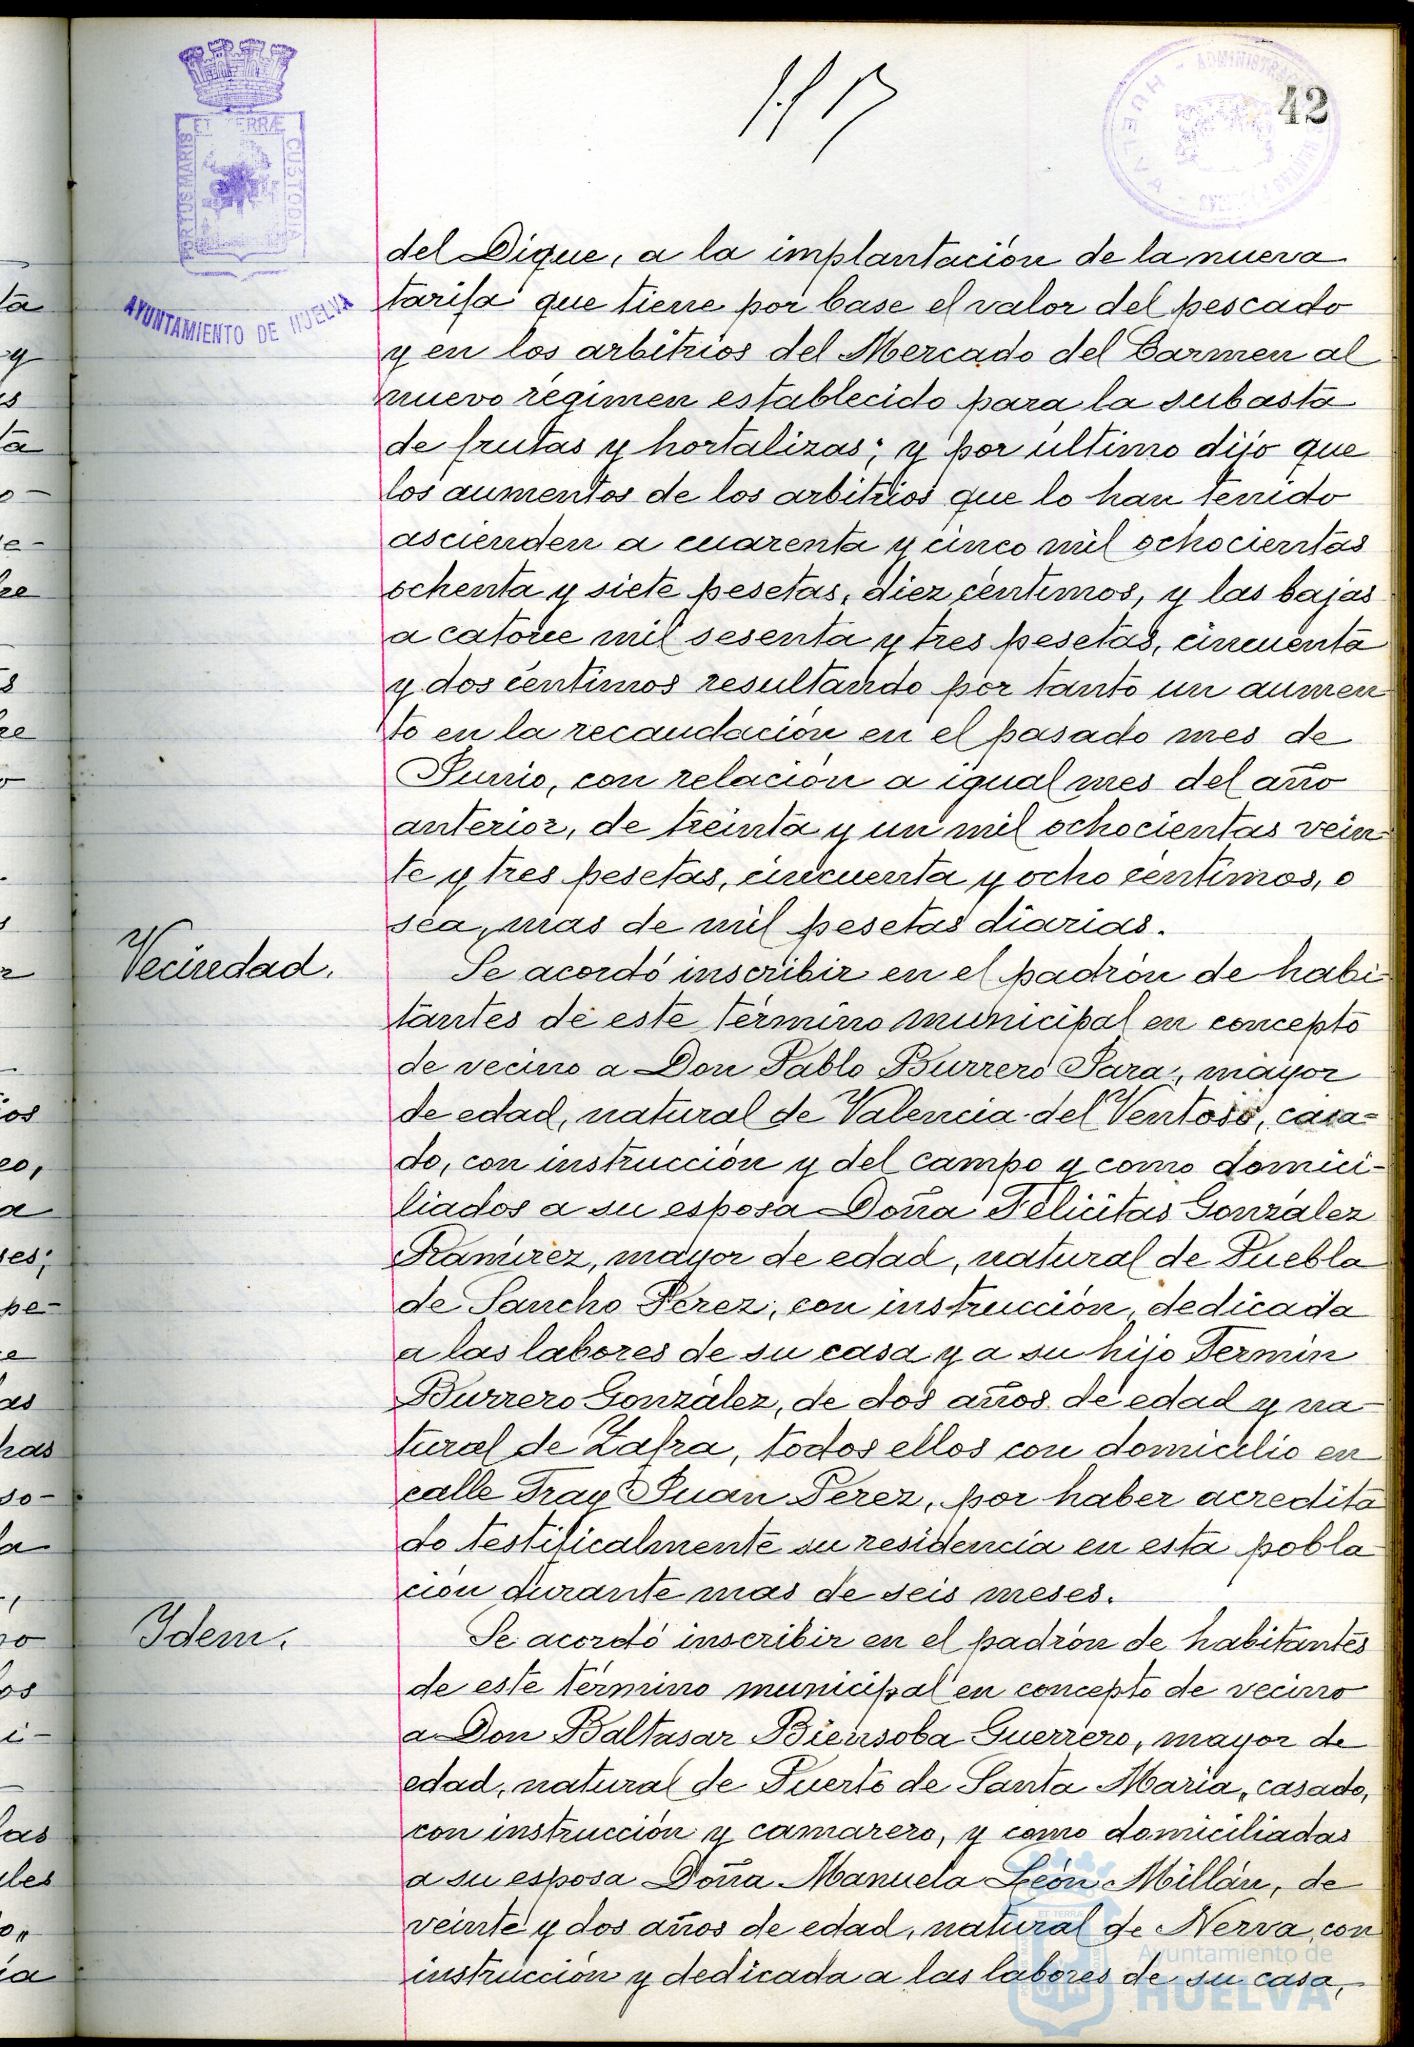 42
PORTUS MARIS ET TERRÆ CUSTODIA
AYUNTAMIENTO DE HUELVA
HUELVA - ADMINISTRACION
del Dique, a la implantación de la nueva
tarifa que tiene por base el valor del pescado
y en los arbitrios del Mercado del Carmen al
nuevo régimen establecido para la subasta
de frutas y hortalizas; y por último dijo que
los aumentos de los arbitrios que lo han tenido
ascienden a cuarenta y cinco mil ochocientas
ochenta y siete pesetas, diez céntimos, y las bajas
a catorce mil sesenta y tres pesetas, cincuenta
y dos céntimos resultando por tanto un aumen
to en la recaudación en el pasado mes de
Junio, con relación a igual mes del año
anterior, de treinta y un mil ochocientas vein-
te y tres pesetas, cincuenta y ocho céntimos, o
sea, mas de mil pesetas diarias.
Vecindad.
Se acordó inscribir en el padrón de habi-
tantes de este término municipal en concepto
de vecino a Don Pablo Burrero Para, mayor
de edad, natural de Valencia del Ventoso, casa=
do, con instrucción y del campo y como domici-
liados a su esposa Doña Felicitas González
Ramírez, mayor de edad, natural de Puebla
de Sancho Perez, con instrucción, dedicada
a las labores de su casa y a su hijo Fermín
Burrero González, de dos años de edad y na-
tural de Zafra, todos ellos con domicilio en
calle Fray Juan Perez, por haber acredita
do testificalmente su residencia en esta pobla
ción durante mas de seis meses.
Idem.
Se acordó inscribir en el padrón de habitantes
de este término municipal en concepto de vecino
a Don Baltasar Biensoba Guerrero, mayor de
edad, natural de Puerto de Santa Maria, casado,
con instrucción y camarero, y como domiciliadas
a su esposa Doña Manuela León Millán, de
veinte y dos años de edad, natural de Nerva, con
instrucción y dedicada a las labores de su casa,
Ayuntamiento de
HUELVA